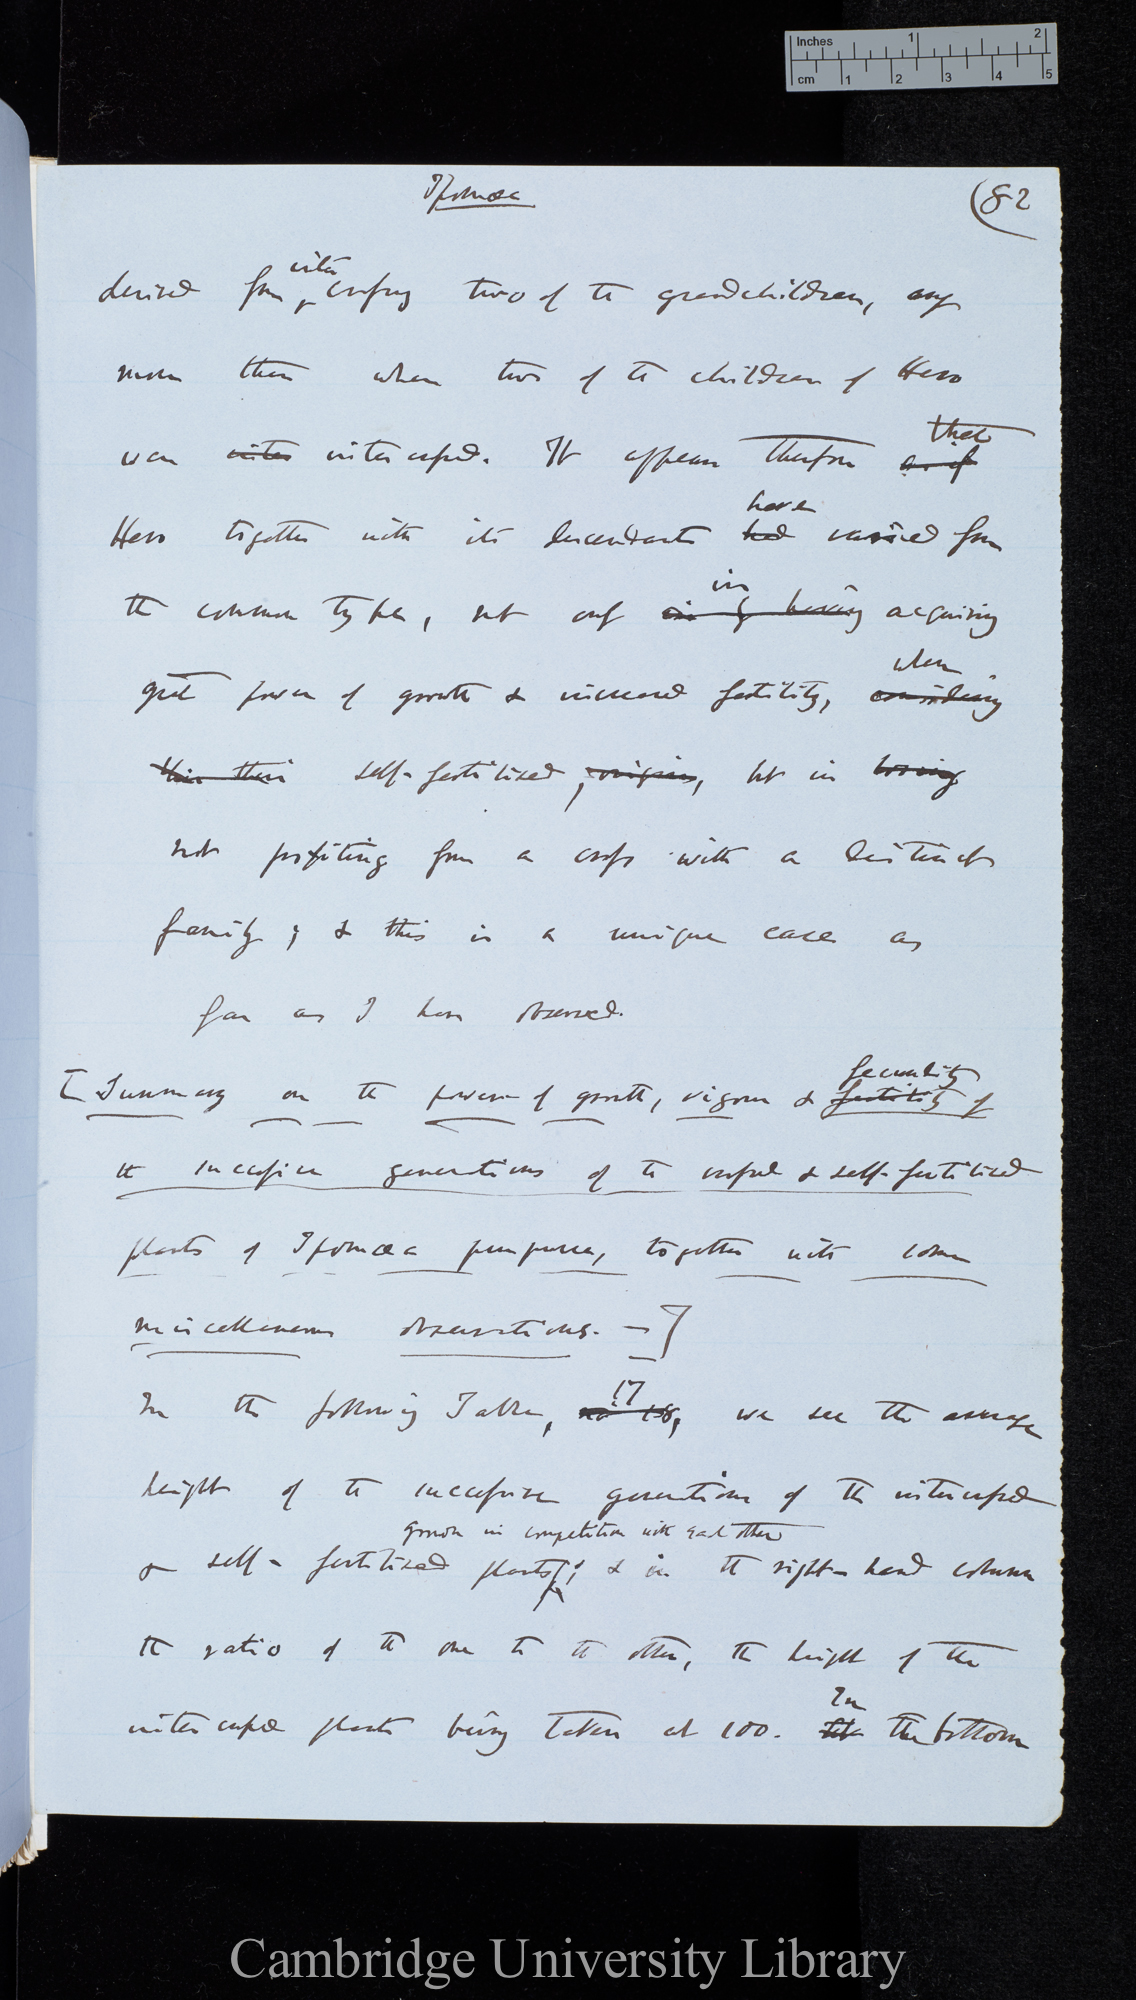 Inches 1 2
cm 1 2 3 4 5
Ipomœa
(82
inter
derived from crossing two of the grandchildren, any
more than when two of the children of Hero
were inter intercrossed. It appears therefore as if
that
Hero together with its descendants had varied from
have
the common type, not only in having acquiring
in
great power of growth & increased fertility, considering
when
their self-fertilised, origin, but in having
not profiting from a cross with a distinct
family; & this is a unique case as
far as I have observed.
[Summary on the power of growth, vigour & fertility of
fecundity
the successive generations of the crossed & self-fertilised
plants of Ipomœa purpurea, together with some
miscellaneous observations. —]
In the following Table, no we see the average
17
height of the successive generations of the intercrossed
grown in competition with each other
& self-fertilised plants; & in the right-hand column
the ratio of the one to the other, the height of the
In
intercrossed plants being taken at 100. At the bottom
Cambridge University Library